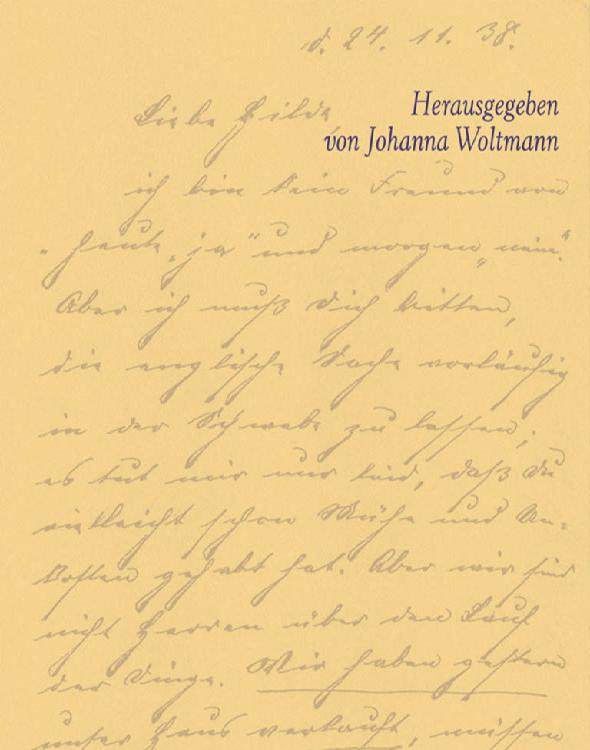 d. 24. 11. 38.
Herausgegeben
von Johanna Woltmann
Liebe Hilde,
ich bin kein Freund von
„heute „ja“ und morgen „nein“.
Aber ich muß Dich bitten,
die englische Sache vorläufig
in der Schwebe zu lassen;
es tut mir nur leid, daß Du
vielleicht schon Mühe und Un-
kosten gehabt hat. Aber wir sind
nicht Herren über den Lauf
der Dinge. Wir haben gestern
unser Haus verkauft, müssen